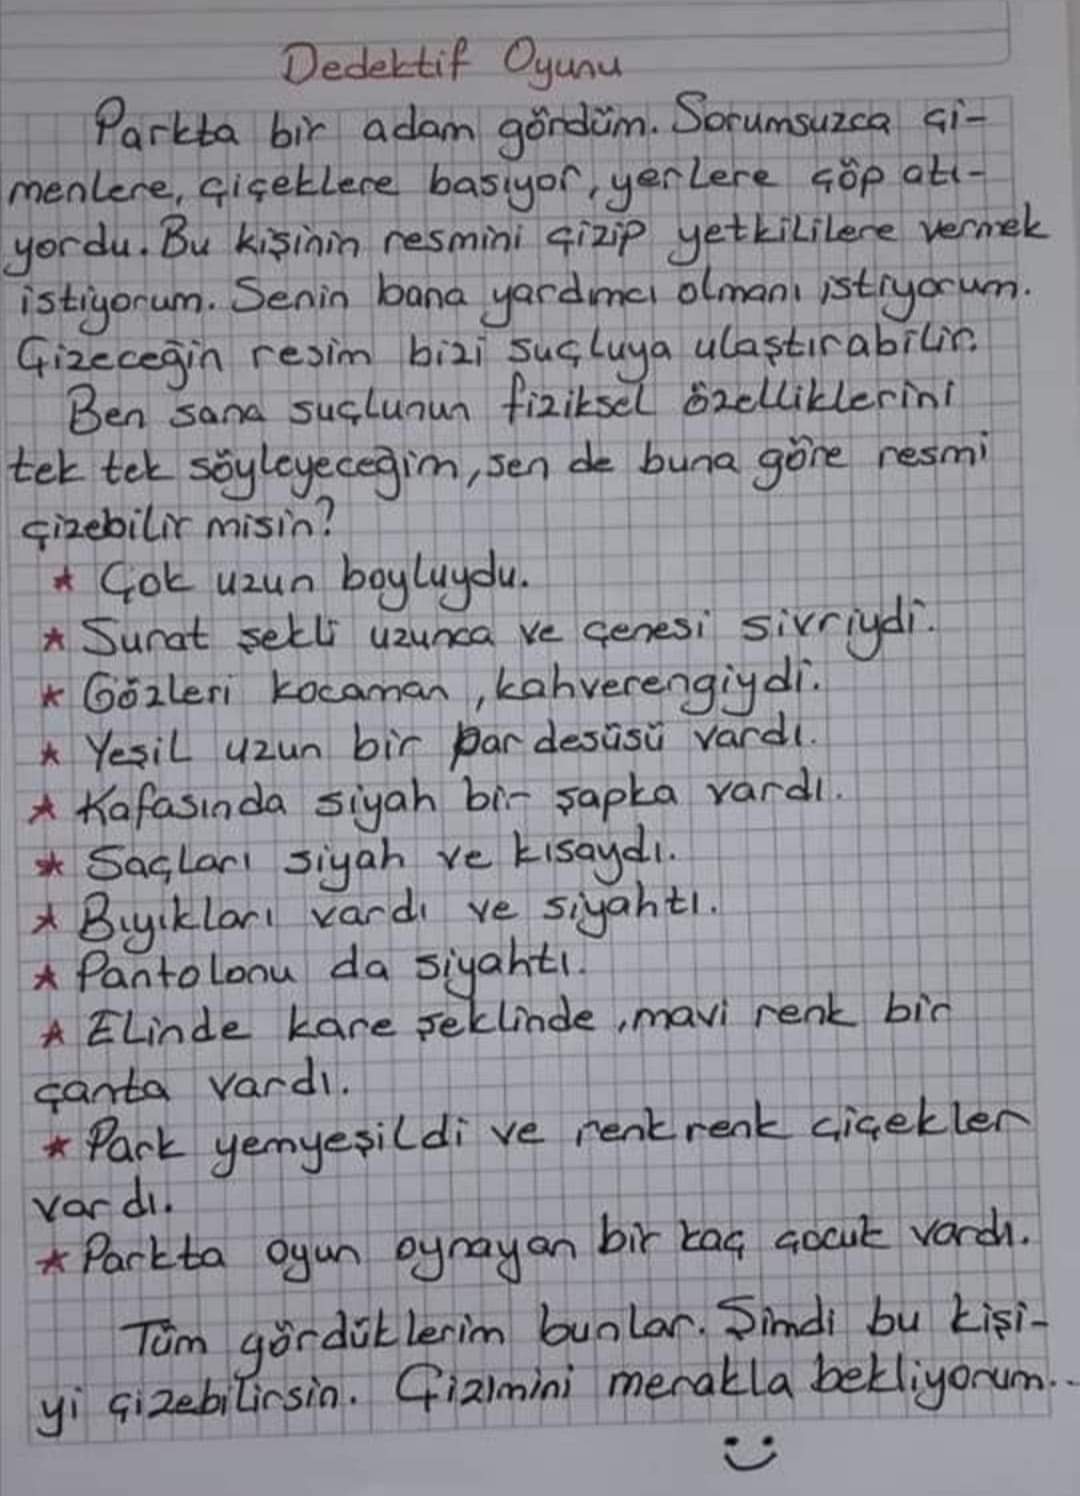 Dedektif Oyunu
Parkta bir adam gördüm. Sorumsuzca çi-
menlere, çiçeklere basıyor, yerlere çöp atı-
yordu. Bu kişinin resmini çizip yetkililere vermek
istiyorum. Senin bana yardımcı olmanı istiyorum.
Çizeceğin resim bizi suçluya ulaştırabilir.
Ben sana suçlunun fiziksel özelliklerini
tek tek söyleyeceğim, sen de buna göre resmi
çizebilir misin?
* Çok uzun boyluydu.
* Surat şekli uzunca ve çenesi sivriydi.
* Gözleri kocaman, kahverengiydi.
* Yeşil uzun bir pardesüsü vardı.
* Kafasında siyah bir şapka vardı.
* Saçları siyah ve kısaydı.
* Bıyıkları vardı ve siyahtı.
* Pantolonu da siyahtı.
* Elinde kare şeklinde, mavi renk bir
çanta vardı.
* Park yemyeşildi ve renk renk çiçekler
vardı.
* Parkta oyun oynayan bir kaç çocuk vardı.
Tüm gördüklerim bunlar. Şimdi bu kişi-
yi çizebilirsin. Çizimini merakla bekliyorum...